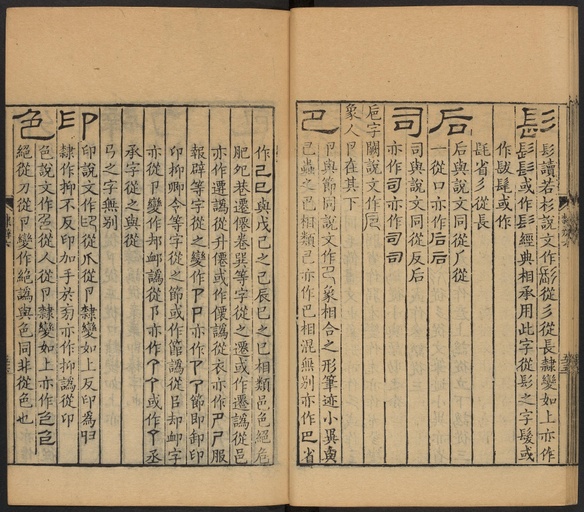 髟
髟讀若杉說文作髟從彡從長隸變如上亦作
镸髟或作镸經典相承用此字從髟之字髮或
作髦或作
镸省彡從長
后
后與說文同從𠂆從
一從口亦作后后
司
司與說文同從反后
亦作司亦作司司
巵字闕說文作巵
象人卪在其下
巴
卪與節同說文作卪象相合之形筆迹小異與
巳蟲之巴相類巳亦作巴相混無別亦作巴省
作己巳與戊己之己辰巳之巳相類邑色絕危
肥夗巷遷僊卷巽等字從之遷或作遷譌從邑
亦作遷譌從升僊或作僊譌從衣亦作尸服
報辟等字從之變作卩卩亦作卩卩節即卸印
卬抑卿令等字從之節或作節譌從㠯却卹字
亦從卪變作却卹譌從阝亦作龴龴或作龴丞
承字從之與從
弓之字無別
印
印說文作從爪從卪隸變如上反印爲
隸作抑不反印加手於旁亦作抑譌從印
色
色說文作色從人從卪隸變如上亦作色色
絕從刀從卪變作絕譌與色同非從色也